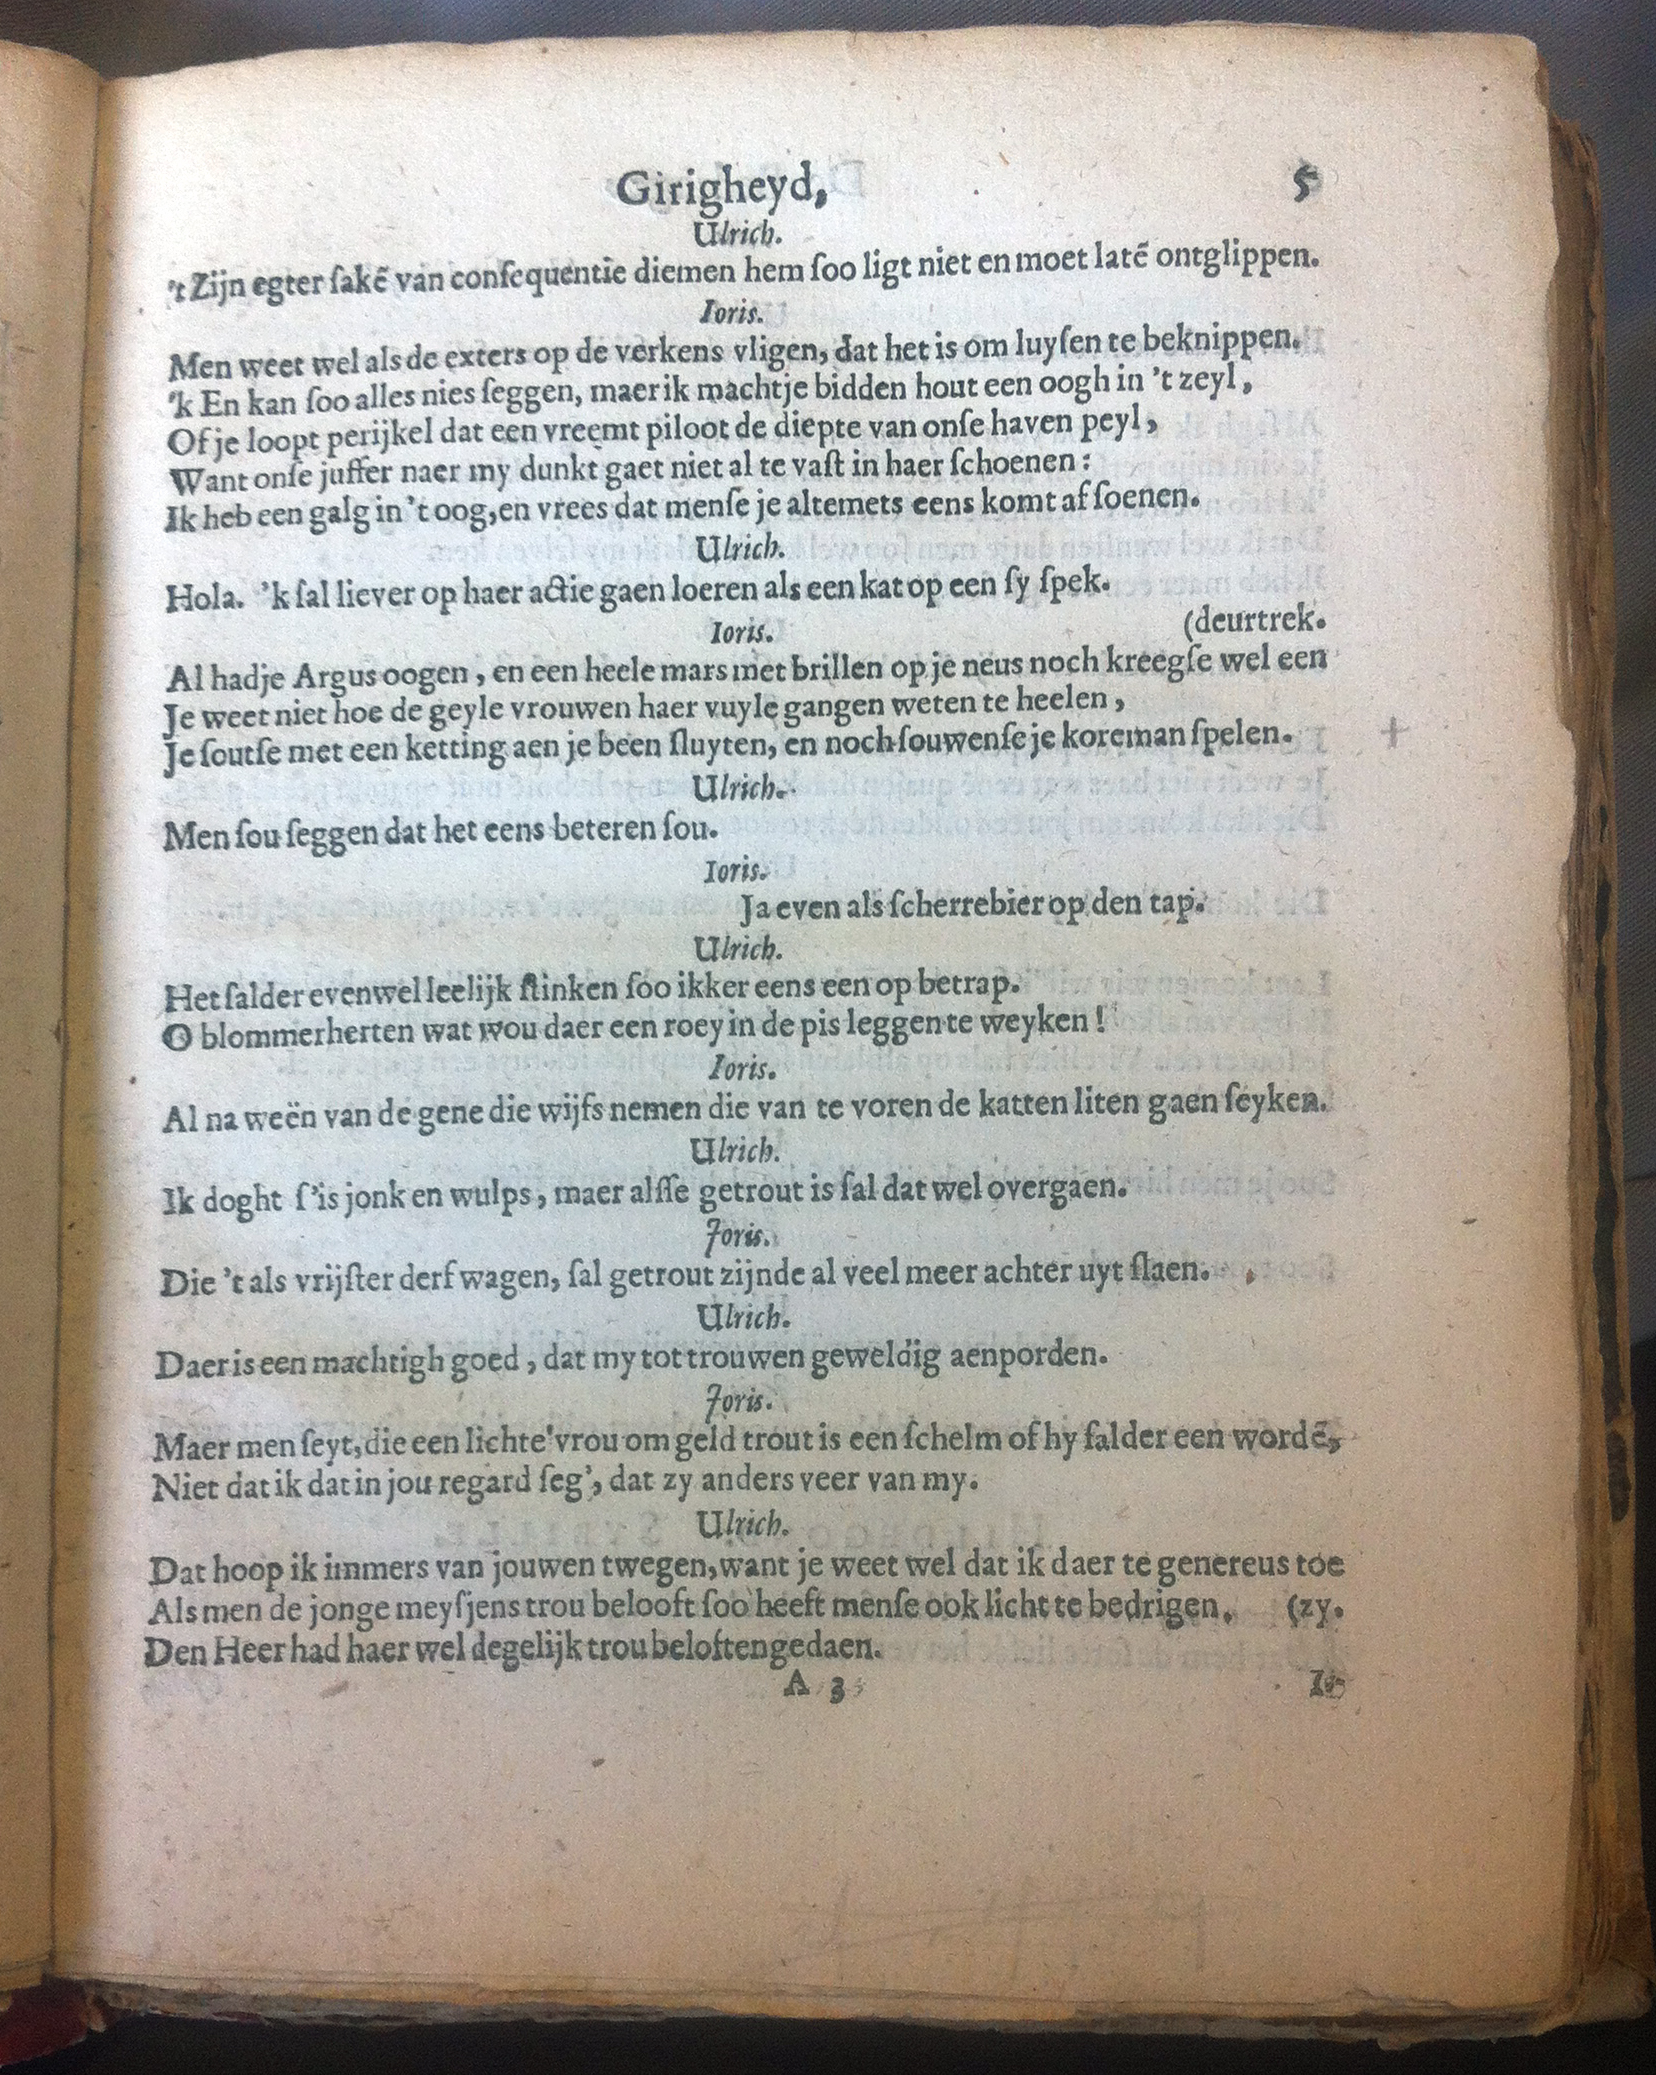 Girigheyd, 5
Ulrich.
't Zijn egter ſakē van conſequentie diemen hem ſoo ligt niet en moet latē ontglippen.
Ioris.
Men weet wel als de exters op de verkens vligen, dat het is om luyſen te beknippen.
'k En kan ſoo alles nies ſeggen, maer ik machtje bidden hout een oogh in 't zeyl,
Of je loopt perijkel dat een vreemt piloot de diepte van onſe haven peyl,
Want onſe juffer naer my dunkt gaet niet al te vaſt in haer ſchoenen:
Ik heb een galg in 't oog, en vrees dat menſe je altemets eens komt af ſoenen.
Ulrich.
Hola. 'k ſal liever op haer actie gaen loeren als een kat op een ſy ſpek.
Ioris. (deurtrek.
Al hadje Argus oogen, en een heele mars met brillen op je neus noch kreegſe wel een
Je weet niet hoe de geyle vrouwen haer vuyle gangen weten te heelen,
Je ſoutſe met een ketting aen je been ſluyten, en noch ſouwenſe je koreman ſpelen. +
Ulrich.
Men ſou ſeggen dat het eens beteren ſou.
Ioris.
Ja even als ſcherrebier op den tap.
Ulrich.
Het ſalder evenwel leelijk ſtinken ſoo ikker eens een op betrap.
O blommerherten wat wou daer een roey in de pis leggen te weyken!
Ioris.
Al na weën van de gene die wijfs nemen die van te voren de katten liten gaen ſeyken.
Ulrich.
Ik doght ſ'is jonk en wulps, maer alſſe getrout is ſal dat wel overgaen.
Joris.
Die 't als vrijſter derf wagen, ſal getrout zijnde al veel meer achter uyt ſlaen.
Ulrich.
Daer is een machtigh goed, dat my tot trouwen geweldig aenporden.
Joris.
Maer men ſeyt, die een lichte vrou om geld trout is een ſchelm of hy ſalder een wordē,
Niet dat ik dat in jou regard ſeg', dat zy anders veer van my.
Ulrich.
Dat hoop ik immers van jouwen twegen, want je weet wel dat ik daer te genereus toe
Als men de jonge meyſjens trou belooft ſoo heeft menſe ook licht te bedrigen. (zy.
Den Heer had haer wel degelijk trou beloften gedaen.
A 3